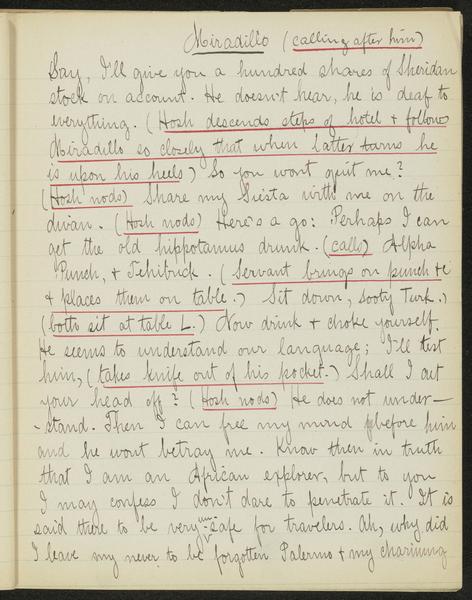 Miradillo (calling after him)
Say, I'll give you a hundred shares of Sheridan
stock on account. He doesn't hear, he is deaf to
everything. (Hosh descends steps of hotel & follows
Miradillo so closely that when latter turns he
is upon his heels) So you wont quit me?
(Hosh nods) Share my Siesta with me on the
divan. (Hosh nods) Here's a go: Perhaps I can
get the old hippotamus drunk. (calls) Alpha
Punch, & Tchibuck. (Servant brings on punch &c
& places them on table.) Sit down, sooty Turk.
(both sit at table L.) Now drink & choke yourself.
He seems to understand our language; I'll test
him, (takes knife out of his pocket.) Shall I cut
your head off? (Hosh nods) He does not under-
-stand. Then I can free my mind before him
and he wont betray me. Know then in truth
that I am an African explorer, but to you
I may confess I don't dare to penetrate it. It is
said there to be very unsafe for travelers. Ah, why did
I leave my never to be forgotten Palermo & my charming